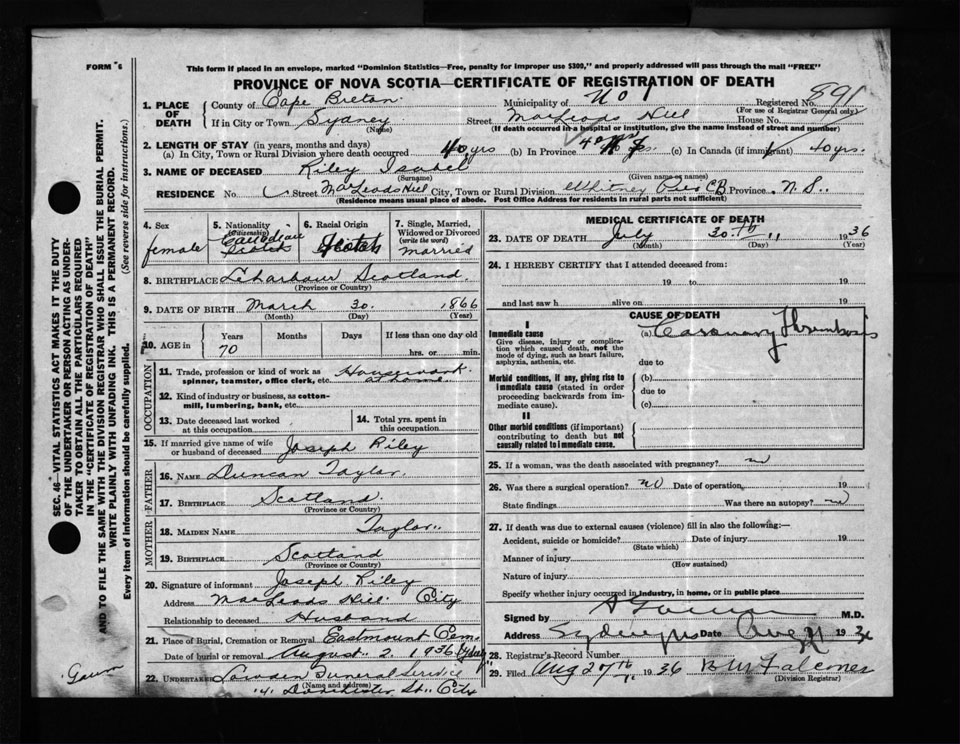 FORM 6
This form if placed in an envelope, marked "Dominion Statistics—Free, penalty for improper use $300," and properly addressed will pass through the mail "FREE"
PROVINCE OF NOVA SCOTIA—CERTIFICATE OF REGISTRATION OF DEATH
1. PLACE OF DEATH
County of Cape Breton. Municipality of No 1 Registered No. 891
(For use of Registrar General only)
If in City or Town Sydney Street MacLeods Hill House No.
(Name) (If death occurred in a hospital or institution, give the name instead of street and number)
2. LENGTH OF STAY (in years, months and days)
(a) In City, Town or Rural Division where death occurred 40 yrs (b) In Province 40 yrs. (c) In Canada (if immigrant) 40 yrs.
3. NAME OF DECEASED Riley Isabel
(Surname) (Given name or names)
RESIDENCE No. Street MacLeods Hill City, Town or Rural Division Whitney Pier CB Province N. S.
(Residence means usual place of abode. Post Office Address for residents in rural parts not sufficient)
4. Sex
female
5. Nationality
(Citizenship)
Canadian
Scotch
6. Racial Origin
Scotch
7. Single, Married, Widowed or Divorced
(write the word)
married
8. BIRTHPLACE Scotland.
(Province or Country)
9. DATE OF BIRTH March 30. 1866
(Month) (Day) (Year)
10. AGE in
Years Months Days If less than one day old
70 hrs. or min.
OCCUPATION
11. Trade, profession or kind of work as spinner, teamster, office clerk, etc. Housework at home.
12. Kind of industry or business, as cotton-mill, lumbering, bank, etc.
13. Date deceased last worked at this occupation
14. Total yrs. spent in this occupation
15. If married give name of wife or husband of deceased Joseph Riley
FATHER
16. NAME Duncan Taylor.
17. BIRTHPLACE Scotland.
(Province or Country)
MOTHER
18. MAIDEN NAME Taylor
19. BIRTHPLACE Scotland
(Province or Country)
20. Signature of informant Joseph Riley
Address MacLeods Hill City
Relationship to deceased Husband
21. Place of Burial, Cremation or Removal Eastmount Cem.
Date of burial or removal August 2. 1936 Sydney
22. UNDERTAKER Funeral Service
(Name and address)
St. City
MEDICAL CERTIFICATE OF DEATH
23. DATE OF DEATH July 30th 1936
(Month) (Day) (Year)
24. I HEREBY CERTIFY that I attended deceased from:
19 to 19
and last saw h alive on 19
CAUSE OF DEATH
I
Immediate cause
Give disease, injury or complication which caused death, not the mode of dying, such as heart failure, asphyxia, asthenia, etc.
(a) Coronary Thrombosis
due to
Morbid conditions, if any, giving rise to immediate cause (stated in order proceeding backwards from immediate cause).
(b)
due to
(c)
II
Other morbid conditions (if important) contributing to death but not causally related to immediate cause.
25. If a woman, was the death associated with pregnancy? no
26. Was there a surgical operation? no Date of operation 19
State findings Was there an autopsy? no
27. If death was due to external causes (violence) fill in also the following:—
Accident, suicide or homicide? Date of injury 19
(State which)
Manner of injury
(How sustained)
Nature of injury
Specify whether injury occurred in industry, in home, or in public place
Signed by M.D.
Address Sydney NS Date Aug 1936
28. Registrar's Record Number
29. Filed Aug 27th 1936 B M Falconer
(Division Registrar)
SEC. 46—VITAL STATISTICS ACT MAKES IT THE DUTY
OF THE UNDERTAKER OR PERSON ACTING AS UNDER-
TAKER TO OBTAIN ALL THE PARTICULARS REQUIRED
IN THE "CERTIFICATE OF REGISTRATION OF DEATH"
AND TO FILE THE SAME WITH THE DIVISION REGISTRAR WHO SHALL ISSUE THE BURIAL PERMIT.
WRITE PLAINLY WITH UNFADING INK. THIS IS A PERMANENT RECORD.
Every item of information should be carefully supplied. (See reverse side for instructions.)